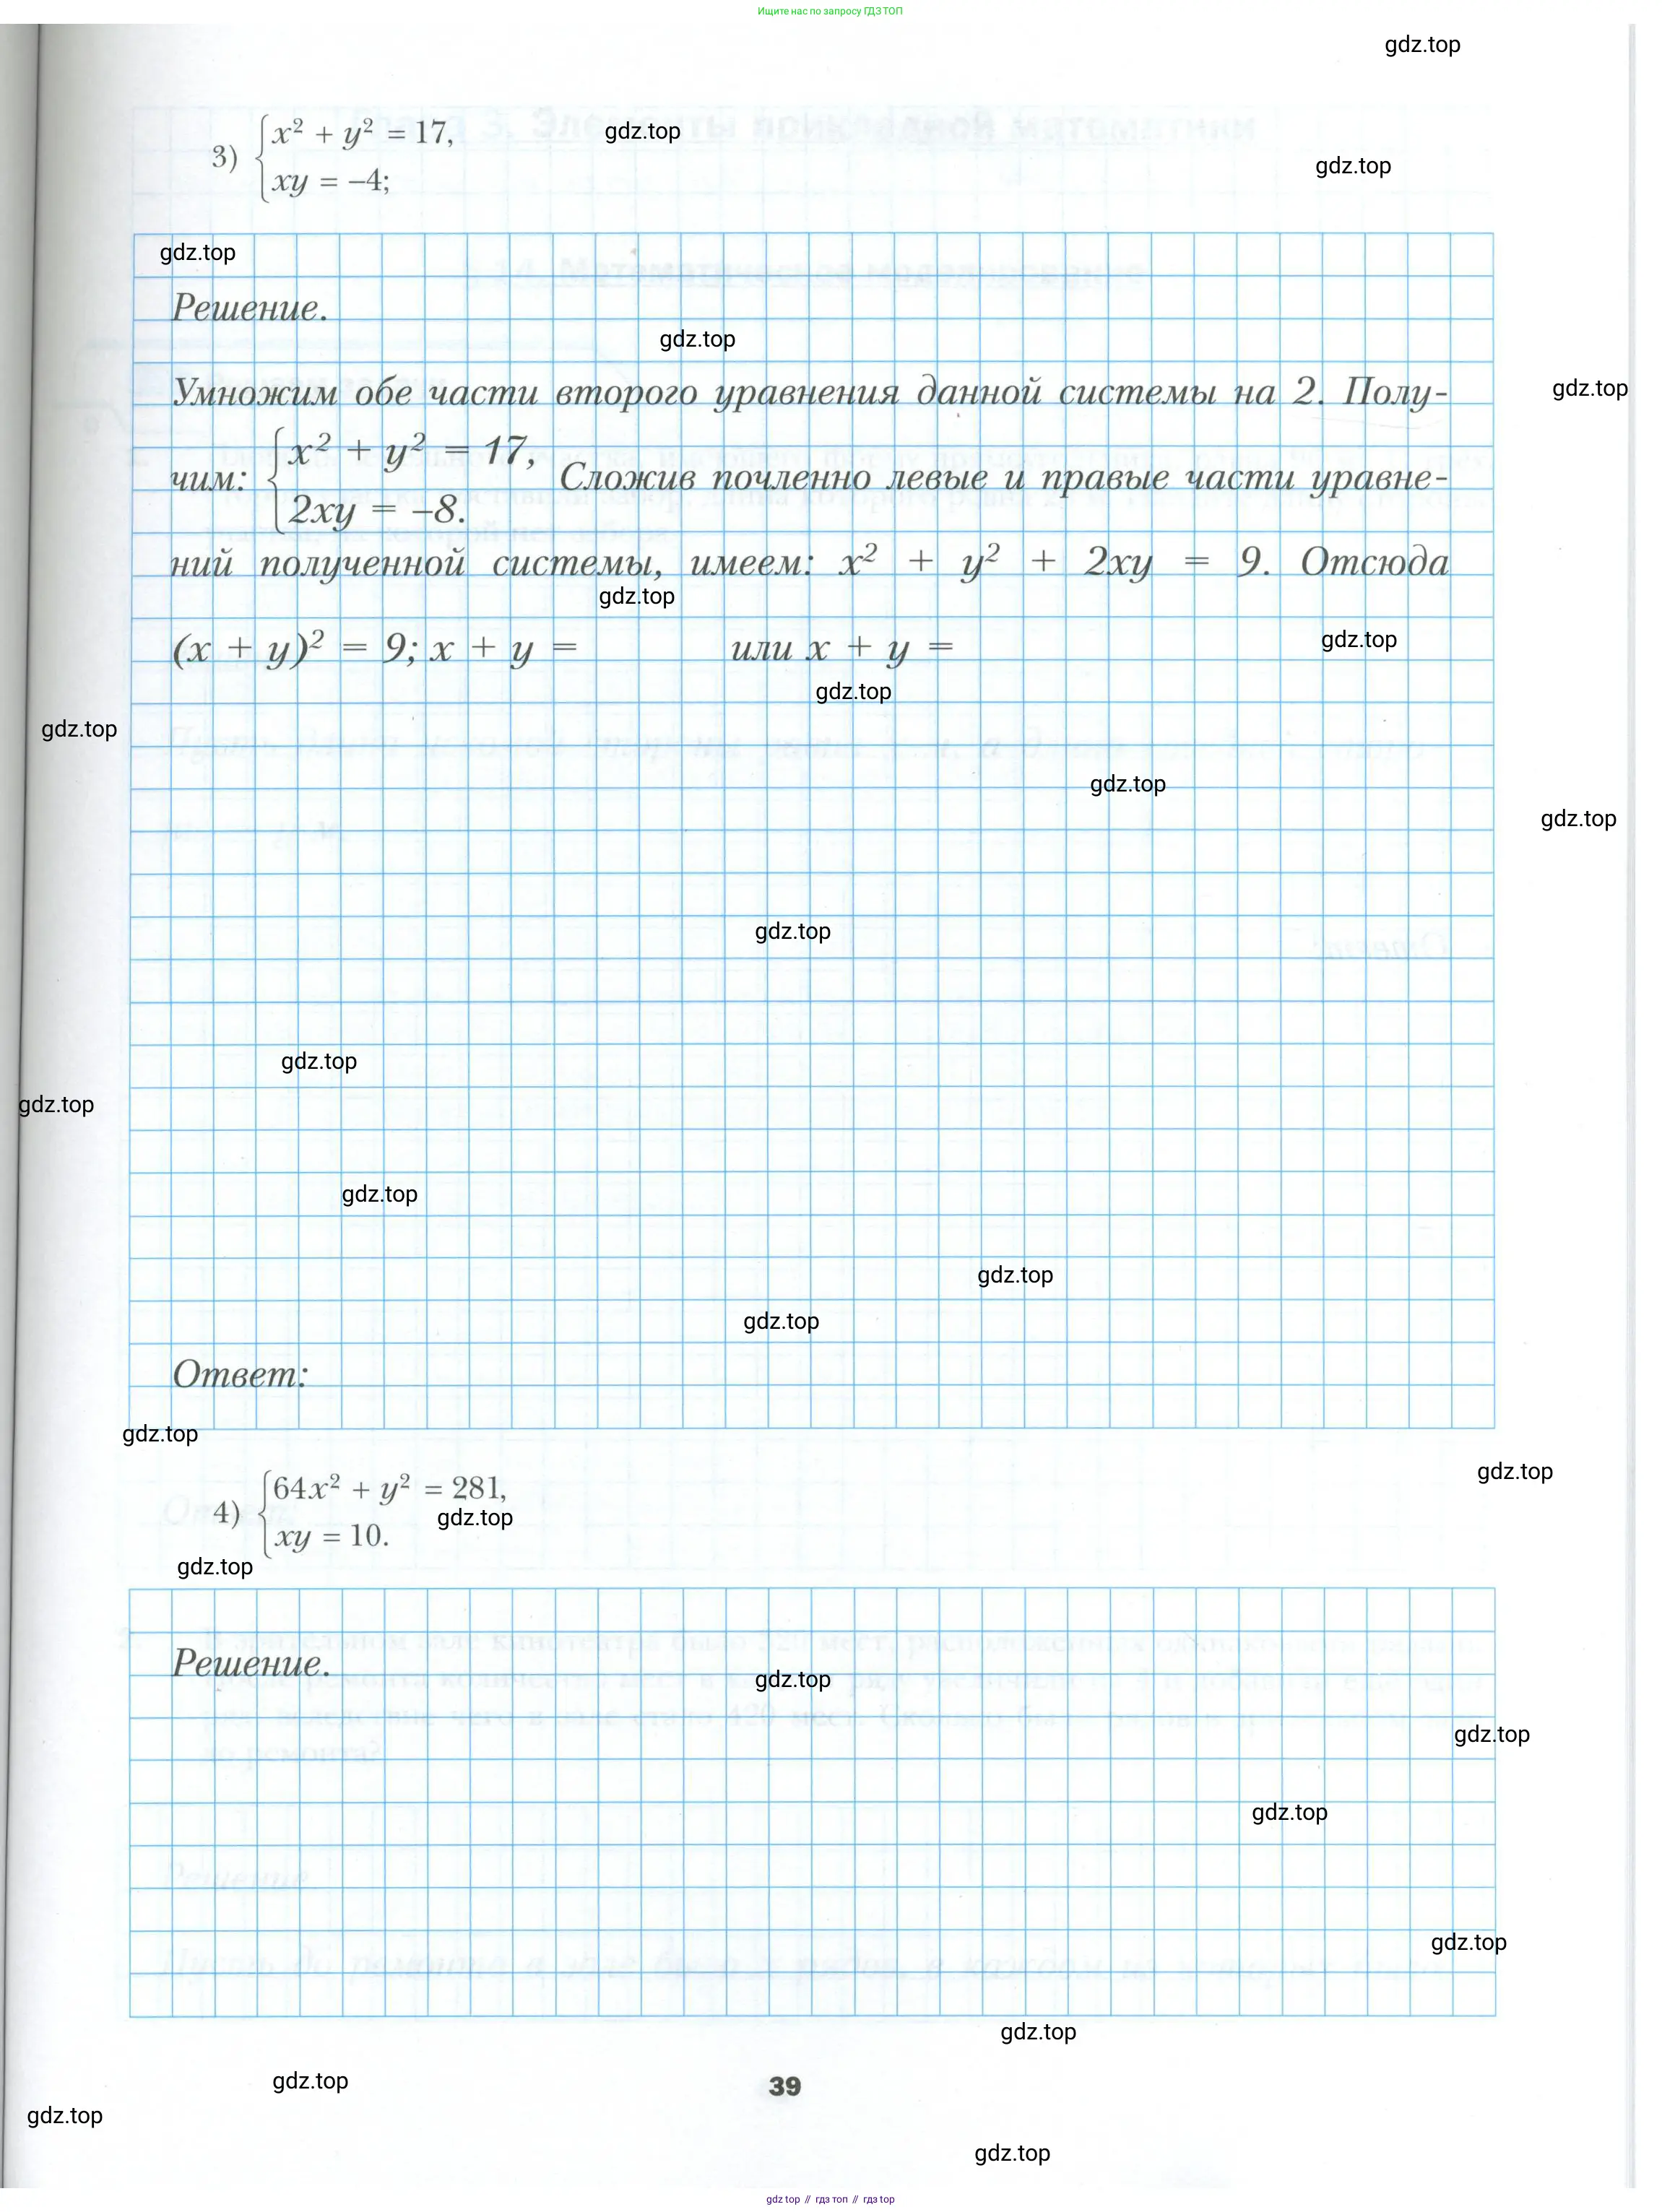 Ищите нас по запросу ГДЗ ТОП
gdz.top
3) { x² + y² = 17,
xy = –4;
gdz.top
gdz.top
gdz.top
Решение.
gdz.top
Умножим обе части второго уравнения данной системы на 2. Полу-
gdz.top
чим: { x² + y² = 17,
2xy = –8. Сложив почленно левые и правые части уравне-
ний полученной системы, имеем: x² + y² + 2xy = 9. Отсюда
gdz.top
(x + y)² = 9; x + y = или x + y =
gdz.top
gdz.top
gdz.top
gdz.top
gdz.top
gdz.top
gdz.top
gdz.top
gdz.top
gdz.top
gdz.top
Ответ:
gdz.top
gdz.top
4) { 64x² + y² = 281,
xy = 10.
gdz.top
gdz.top
Решение.
gdz.top
gdz.top
gdz.top
gdz.top
gdz.top
gdz.top
39
gdz.top
gdz.top
gdz top // гдз топ // гдз top